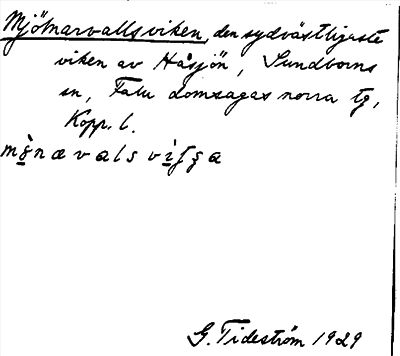 Mjölnarvallsviken, den sydvästligaste
viken av Håsjön, Sundborns
sn, Falu domsagas norra tg,
Kopp. l.
G. Tideström 1929